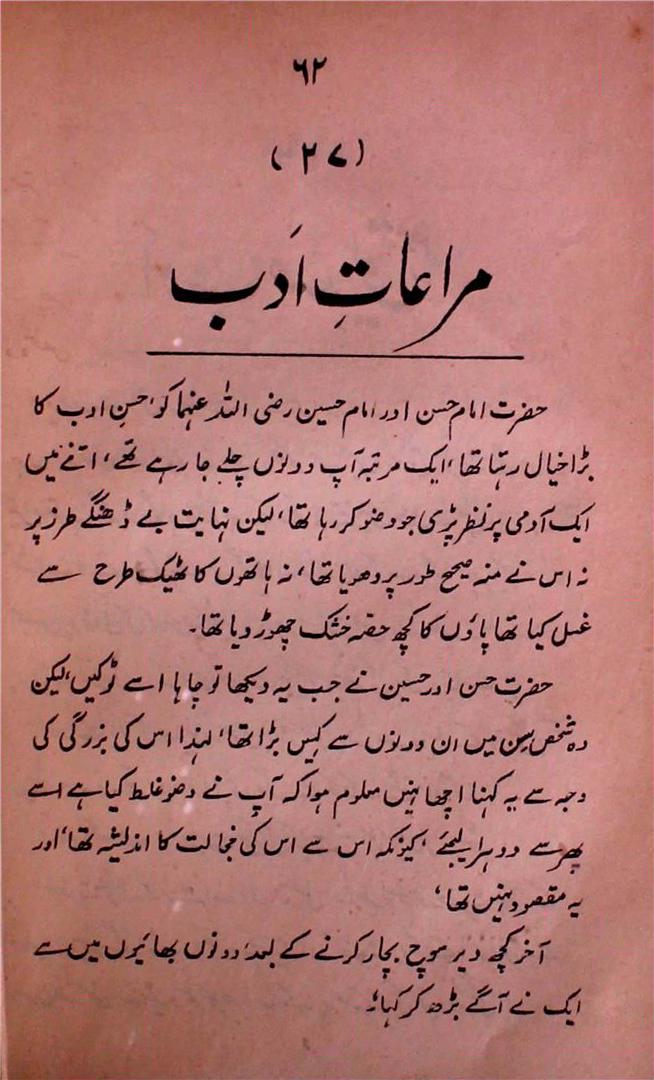 ۶۲
(۲۷)
مراعاتِ اَدب
حضرت امام حسن اور امام حسین رضی اللہ عنہما کو، حسنِ ادب کا
بڑا خیال رہتا تھا، ایک مرتبہ آپ دونوں چلے جا رہے تھے، اتنے میں
ایک آدمی پر نظر پڑی جو وضو کر رہا تھا، لیکن نہایت بے ڈھنگے طرز پر
نہ اس نے منہ صحیح طور پر دھویا تھا، نہ ہاتھوں کا ٹھیک طرح سے
غسل کیا تھا پاؤں کا کچھ حصہ خشک چھوڑ دیا تھا۔
حضرت حسن اور حسین نے جب یہ دیکھا تو چاہا اسے ٹوکیں، لیکن
وہ شخص سن میں ان دونوں سے کہیں بڑا تھا، لہٰذا اس کی بزرگی کی
وجہ سے یہ کہنا اچھا نہیں معلوم ہوا کہ آپ نے وضو غلط کیا ہے اسے
پھر سے دوہرا لیجئے، کیونکہ اس سے اس کی خجالت کا اندیشہ تھا، اور
یہ مقصود نہیں تھا،
آخر کچھ دیر سوچ بچار کرنے کے بعد دونوں بھائیوں میں سے
ایک نے آگے بڑھ کر کہا:۔